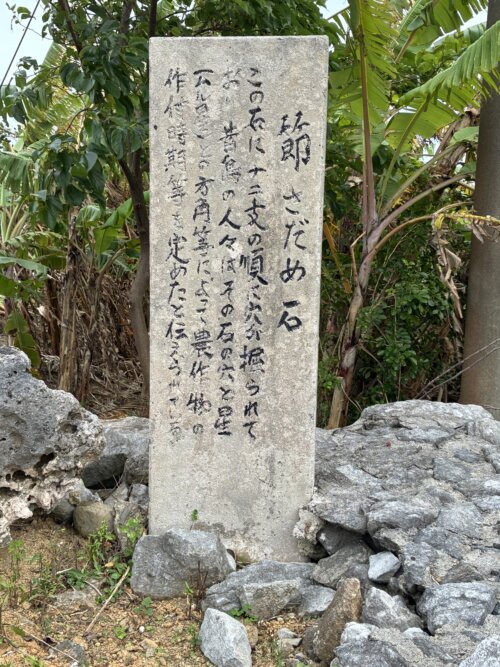 節 さだめ石
この石に十二支の順に穴が掘られて
おり 昔島の人々はその石の穴と星
の方角等によって農作物の
作付時期等を定めたと伝えられている